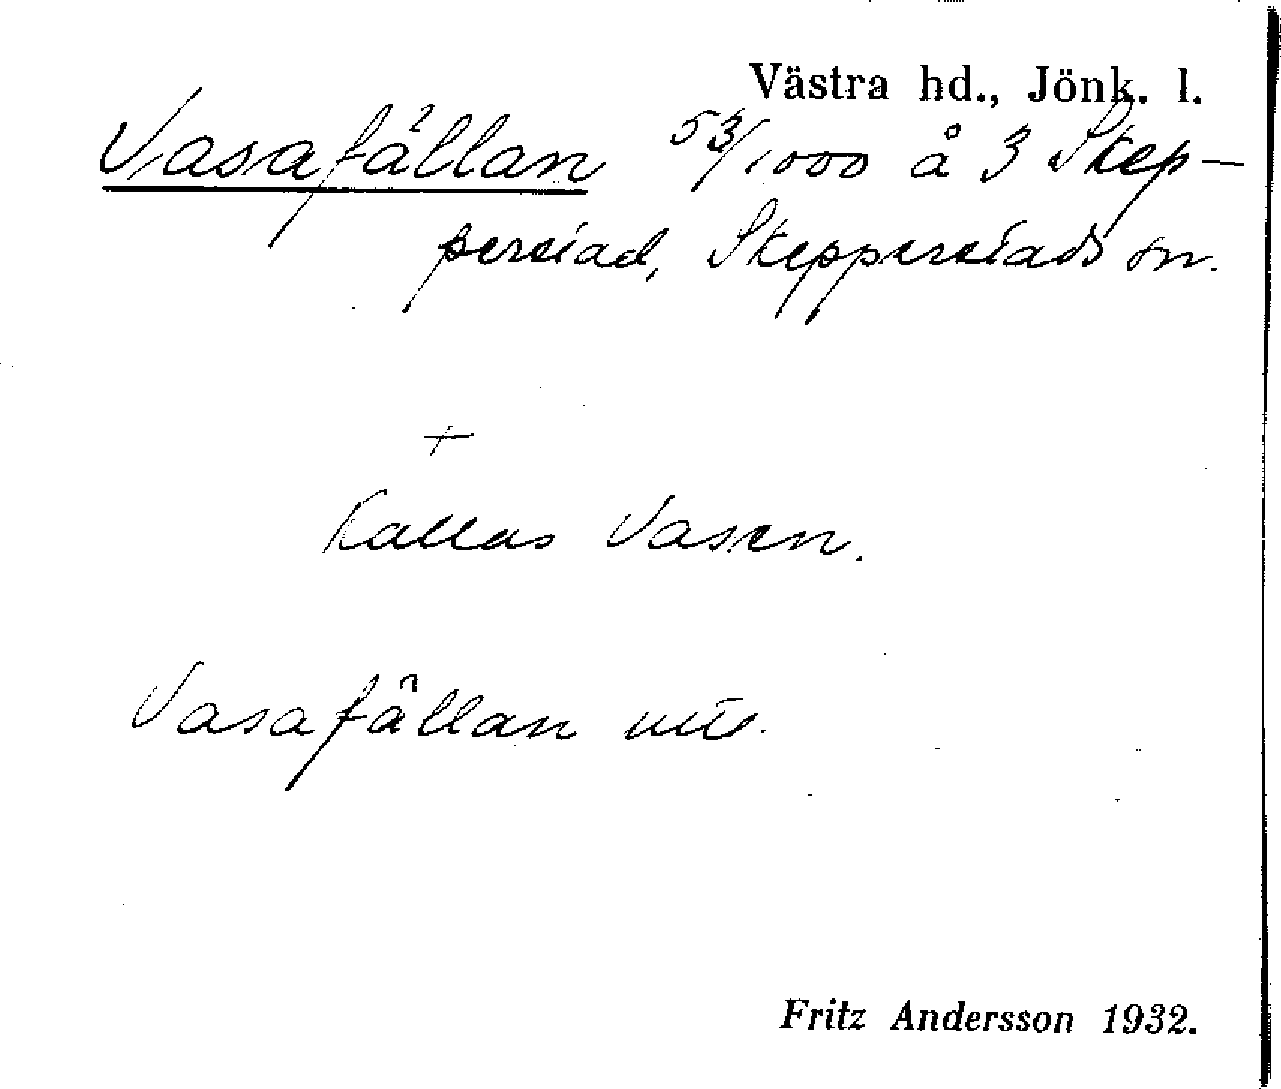 Västra hd., Jönk. l.
Vasafällan 53/1000 å 3 Skep-
perstad, Skepperstads sn.
+
Kallas Vasen.
Vasafällan
Fritz Andersson 1932.